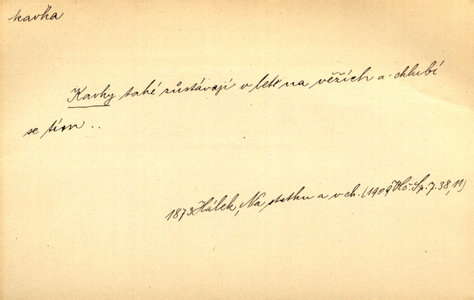 kavka
Kavky také zůstávají v létě na věžích a chlubí
se tím..
1873 Hálek, Na statku a v ch. (1909 Há. Sp. 7.38,11)